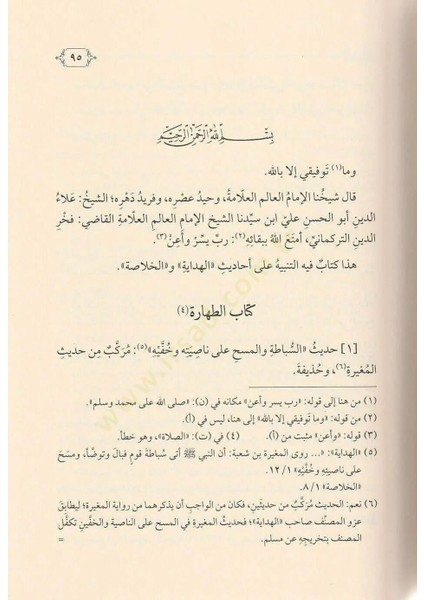 ٩٥
بِسْمِ اللهِ الرَّحْمٰنِ الرَّحِيْمِ
وما(١) تَوفيقي إلا بالله.
قال شيخُنا الإمامُ العالم العلّامةُ، وحيدُ عصْرِه، وفريدُ دَهْرِه؛ الشيخُ: علاءُ
الدين أبو الحسن عليّ ابن سيِّدنا الشيخ الإمام العالم العلّامةِ القاضي: فخْرِ
الدين التركمانيّ، أمتَعَ اللهُ ببقائِهِ(٢): ربِّ يسّرْ وأَعِنْ(٣).
هذا كتابٌ فيه التنبيهُ على أحاديثِ «الهدايةِ» و«الخلاصة».
كتاب الطهارة(٤)
[١] حديثُ «السُّباطةِ والمسحِ على ناصِيَتِه وخُفَّيْهِ»(٥): مُرَكَّبٌ مِن حديثِ
المُغيرةِ(٦)، وحُذيفةَ.
(١) من هنا إلى قوله: «رب يسر وأعِن» مكانه في (ن): «صلى الله على محمد وسلم».
(٢) من قوله: «وما توفيقي إلا بالله» إلى هنا، ليس في (أ).
(٣) قوله: «وأعن» مثبت من (أ). (٤) في (ت): «الصلاة»، وهو خطأ.
(٥) «الهداية»: «... روى المغيرة بن شعبة: أن النبي ﷺ أتى سُباطةَ قومٍ فبالَ وتوضَّأ، ومسَحَ
على ناصيتِه وخُفَّيْهِ» ١٢/١.
«الخلاصة» ٨/١.
(٦) نعم: الحديث مُرَكَّبٌ من حديثين، فكان من الواجبِ أن يذكرهما من رواية المغيرة؛ ليطابقَ
عزو المصنِّف صاحب «الهداية»؛ فحديثُ المغيرة في المسح على الناصية والخفَّين تكفَّل
المصنف بتخريجِهِ عن مسلم. =